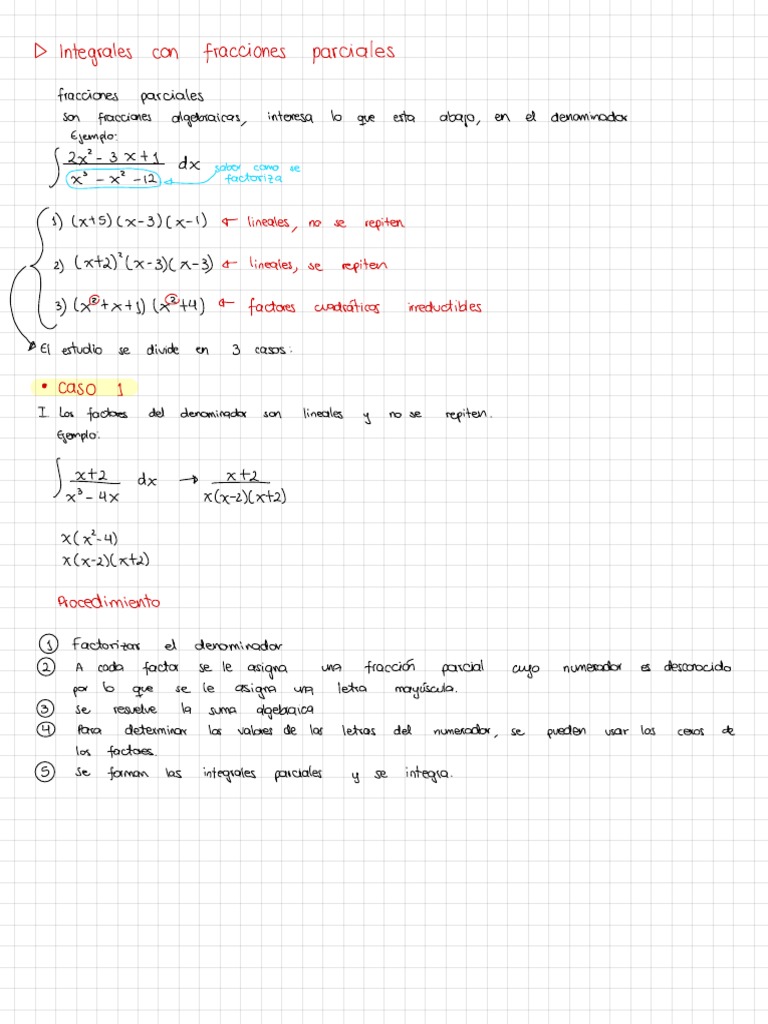 ▷ Integrales con fracciones parciales
fracciones parciales
son fracciones algebraicas, interesa lo que esta abajo, en el denominador
Ejemplo:
∫ (2x² - 3x + 1)/(x³ - x² - 12) dx ← saber como se factoriza
1) (x+5)(x-3)(x-1) ← lineales, no se repiten
2) (x+2)²(x-3)(x-3) ← lineales, se repiten
3) (x²+x+1)(x²+4) ← factores cuadráticos irreductibles
El estudio se divide en 3 casos:
• Caso 1
I Los factores del denominador son lineales y no se repiten.
Ejemplo:
∫ (x+2)/(x³-4x) dx → (x+2)/(x(x-2)(x+2))
x(x²-4)
x(x-2)(x+2)
Procedimiento
① Factorizar el denominador
② A cada factor se le asigna una fracción parcial cuyo numerador es desconocido
por lo que se le asigna una letra mayúscula.
③ Se resuelve la suma algebraica
④ Para determinar los valores de las letras del numerador, se pueden usar los ceros de
los factores.
⑤ Se forman las integrales parciales y se integra.